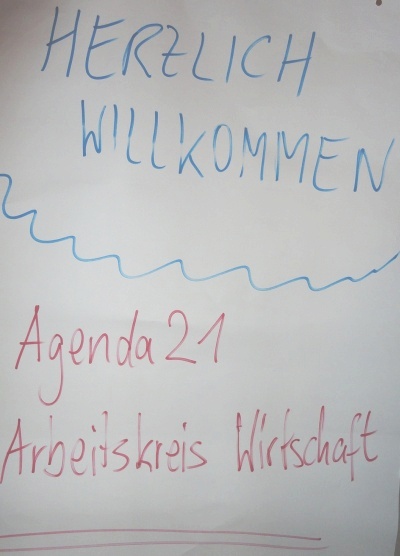 HERZLICH
WILLKOMMEN
Agenda 21
Arbeitskreis Wirtschaft